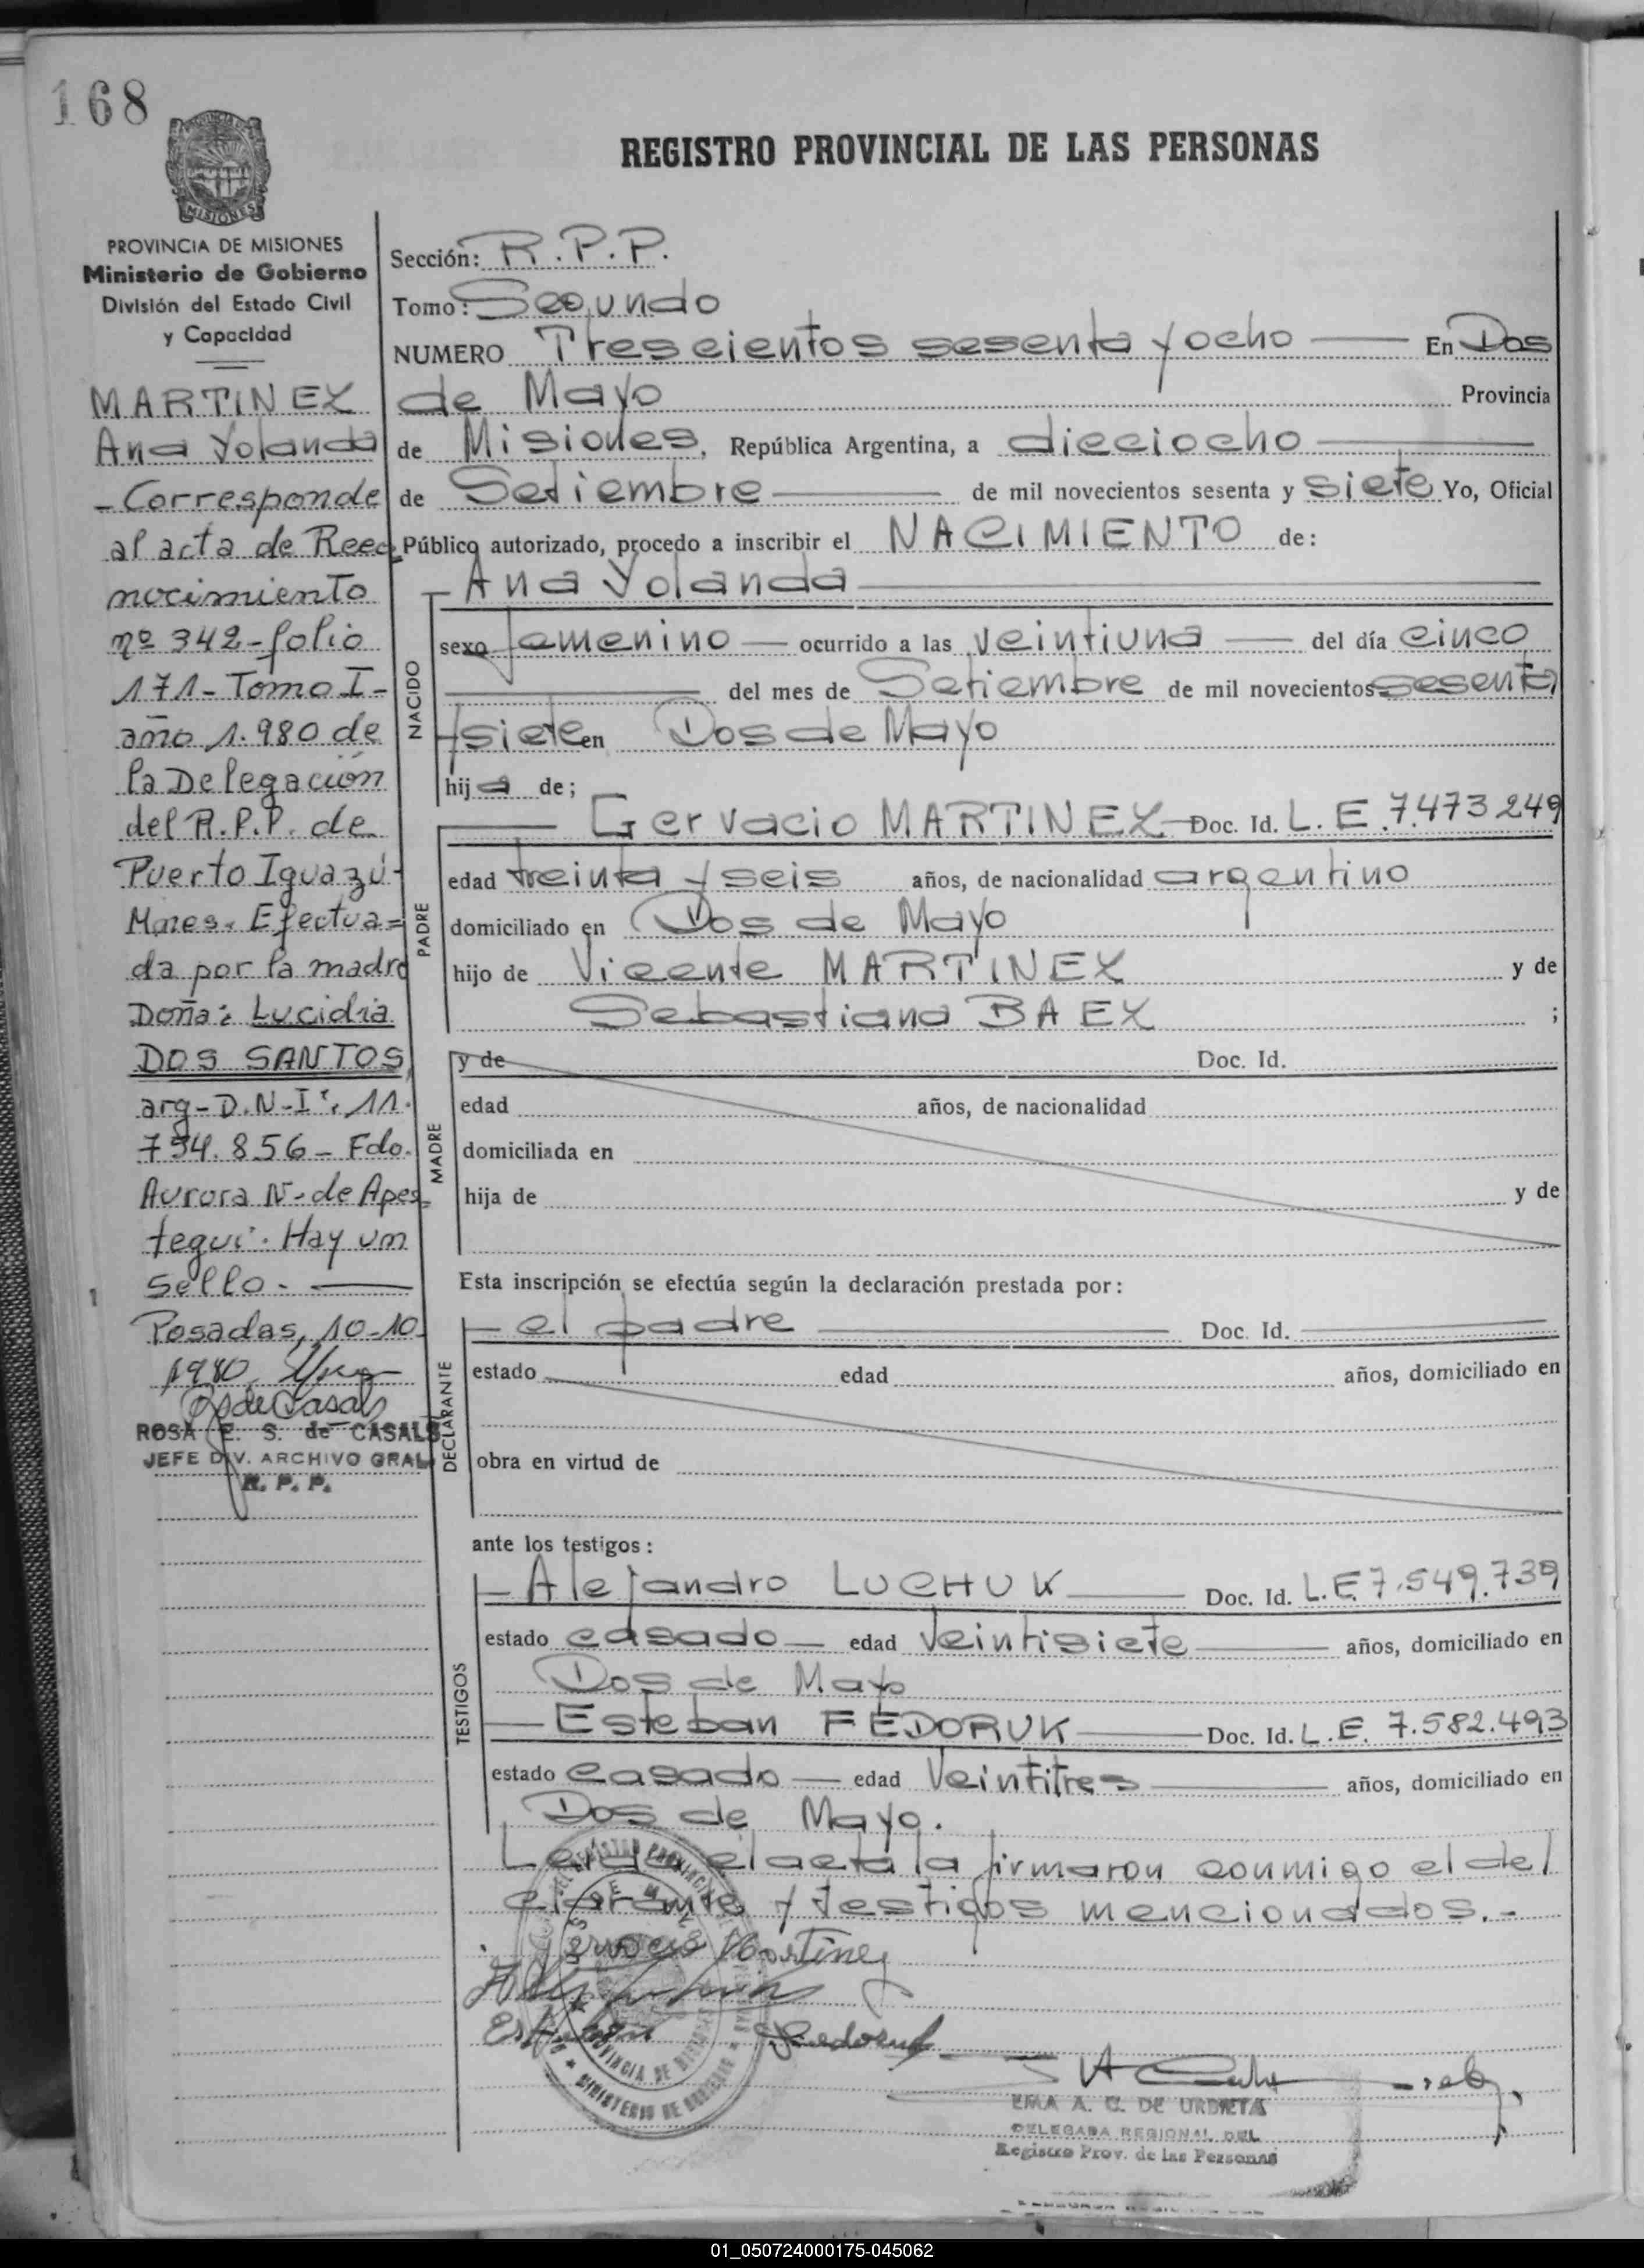 168
PROVINCIA DE
MISIONES
REGISTRO PROVINCIAL DE LAS PERSONAS
PROVINCIA DE MISIONES
Ministerio de Gobierno
División del Estado Civil
y Capacidad
MARTINEZ
Ana Yolanda
- Corresponde
al acta de Reco
nocimiento
nº 342 - folio
171 - Tomo I -
año 1.980 de
la Delegación
del R.P.P. de
Puerto Iguazú -
Mnes. Efectua=
da por la madre
Doña: Lucidia
DOS SANTOS,
arg - D.N.I. 11.
794.856 - Fdo.
Aurora N. de Apes-
tegui. Hay un
sello.
Posadas, 10-10
1980
RS de Casals
ROSA E. S. de CASALS
JEFE DIV. ARCHIVO GRAL
R. P. P.
Sección: R.P.P.
Tomo: Segundo
NUMERO Trescientos sesenta y ocho En Dos
de Mayo Provincia
de Misiones, República Argentina, a dieciocho
de Setiembre de mil novecientos sesenta y siete Yo, Oficial
Público autorizado, procedo a inscribir el NACIMIENTO de:
Ana Yolanda
NACIDO
sexo femenino ocurrido a las veintiuna del día cinco
del mes de Setiembre de mil novecientos sesenta
y siete en Dos de Mayo
hija de;
PADRE
Gervacio MARTINEZ Doc. Id. L.E. 7.473249
edad treinta y seis años, de nacionalidad argentino
domiciliado en Dos de Mayo
hijo de Vicente MARTINEZ y de
Sebastiana BAEZ ;
MADRE
y de Doc. Id.
edad años, de nacionalidad
domiciliada en
hija de y de
Esta inscripción se efectúa según la declaración prestada por:
DECLARANTE
el padre Doc. Id.
estado edad años, domiciliado en
obra en virtud de
ante los testigos:
TESTIGOS
Alejandro LUCHUK Doc. Id. L.E. 7.549.739
estado casado edad veintisiete años, domiciliado en
Dos de Mayo
Esteban FEDORUK Doc. Id. L.E. 7.582.493
estado casado edad veintitres años, domiciliado en
Dos de Mayo.
Leida el acta la firmaron conmigo el del
clarante y testigos mencionados.-
Gervacio Martinez
Esteban Fedoruk
PROVINCIA DE MISIONES
MINISTERIO DE GOBIERNO
EMA A. C. DE URDIETA
DELEGADA REGIONAL DEL
Registro Prov. de las Personas
01_050724000175-045062